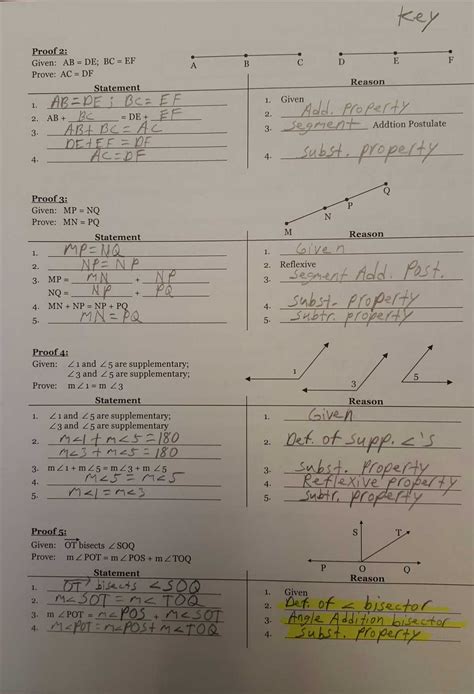 Key
Proof 2:
Given: AB = DE; BC = EF
Prove: AC = DF
A B C D E F
Statement Reason
1. AB = DE ; BC = EF 1. Given
2. AB + BC = DE + EF 2. Add. property
3. AB + BC = AC 3. segment Addtion Postulate
DE + EF = DF
4. AC = DF 4. subst. property
Proof 3:
Given: MP = NQ
Prove: MN = PQ
M N P Q
Statement Reason
1. MP = NQ 1. Given
2. NP = NP 2. Reflexive
3. MP = MN + NP 3. segment Add. Post.
NQ = NP + PQ
4. MN + NP = NP + PQ 4. subst. property
5. MN = PQ 5. subtr. property
Proof 4:
Given: ∠1 and ∠5 are supplementary;
∠3 and ∠5 are supplementary;
Prove: m∠1 = m∠3
1 3 5
Statement Reason
1. ∠1 and ∠5 are supplementary; 1. Given
∠3 and ∠5 are supplementary;
2. m∠1 + m∠5 = 180 2. Def. of supp. ∠'s
m∠3 + m∠5 = 180
3. m∠1 + m∠5 = m∠3 + m∠5 3. subst. property
4. m∠5 = m∠5 4. Reflexive property
5. m∠1 = m∠3 5. subtr. property
Proof 5:
Given: OT bisects ∠SOQ
Prove: m∠POT = m∠POS + m∠TOQ
S T
P O Q
Statement Reason
1. OT bisects ∠SOQ 1. Given
2. m∠SOT = m∠TOQ 2. Def. of ∠ bisector
3. m∠POT = m∠POS + m∠SOT 3. Angle Addition bisector
4. m∠POT = m∠POS + m∠TOQ 4. subst. property